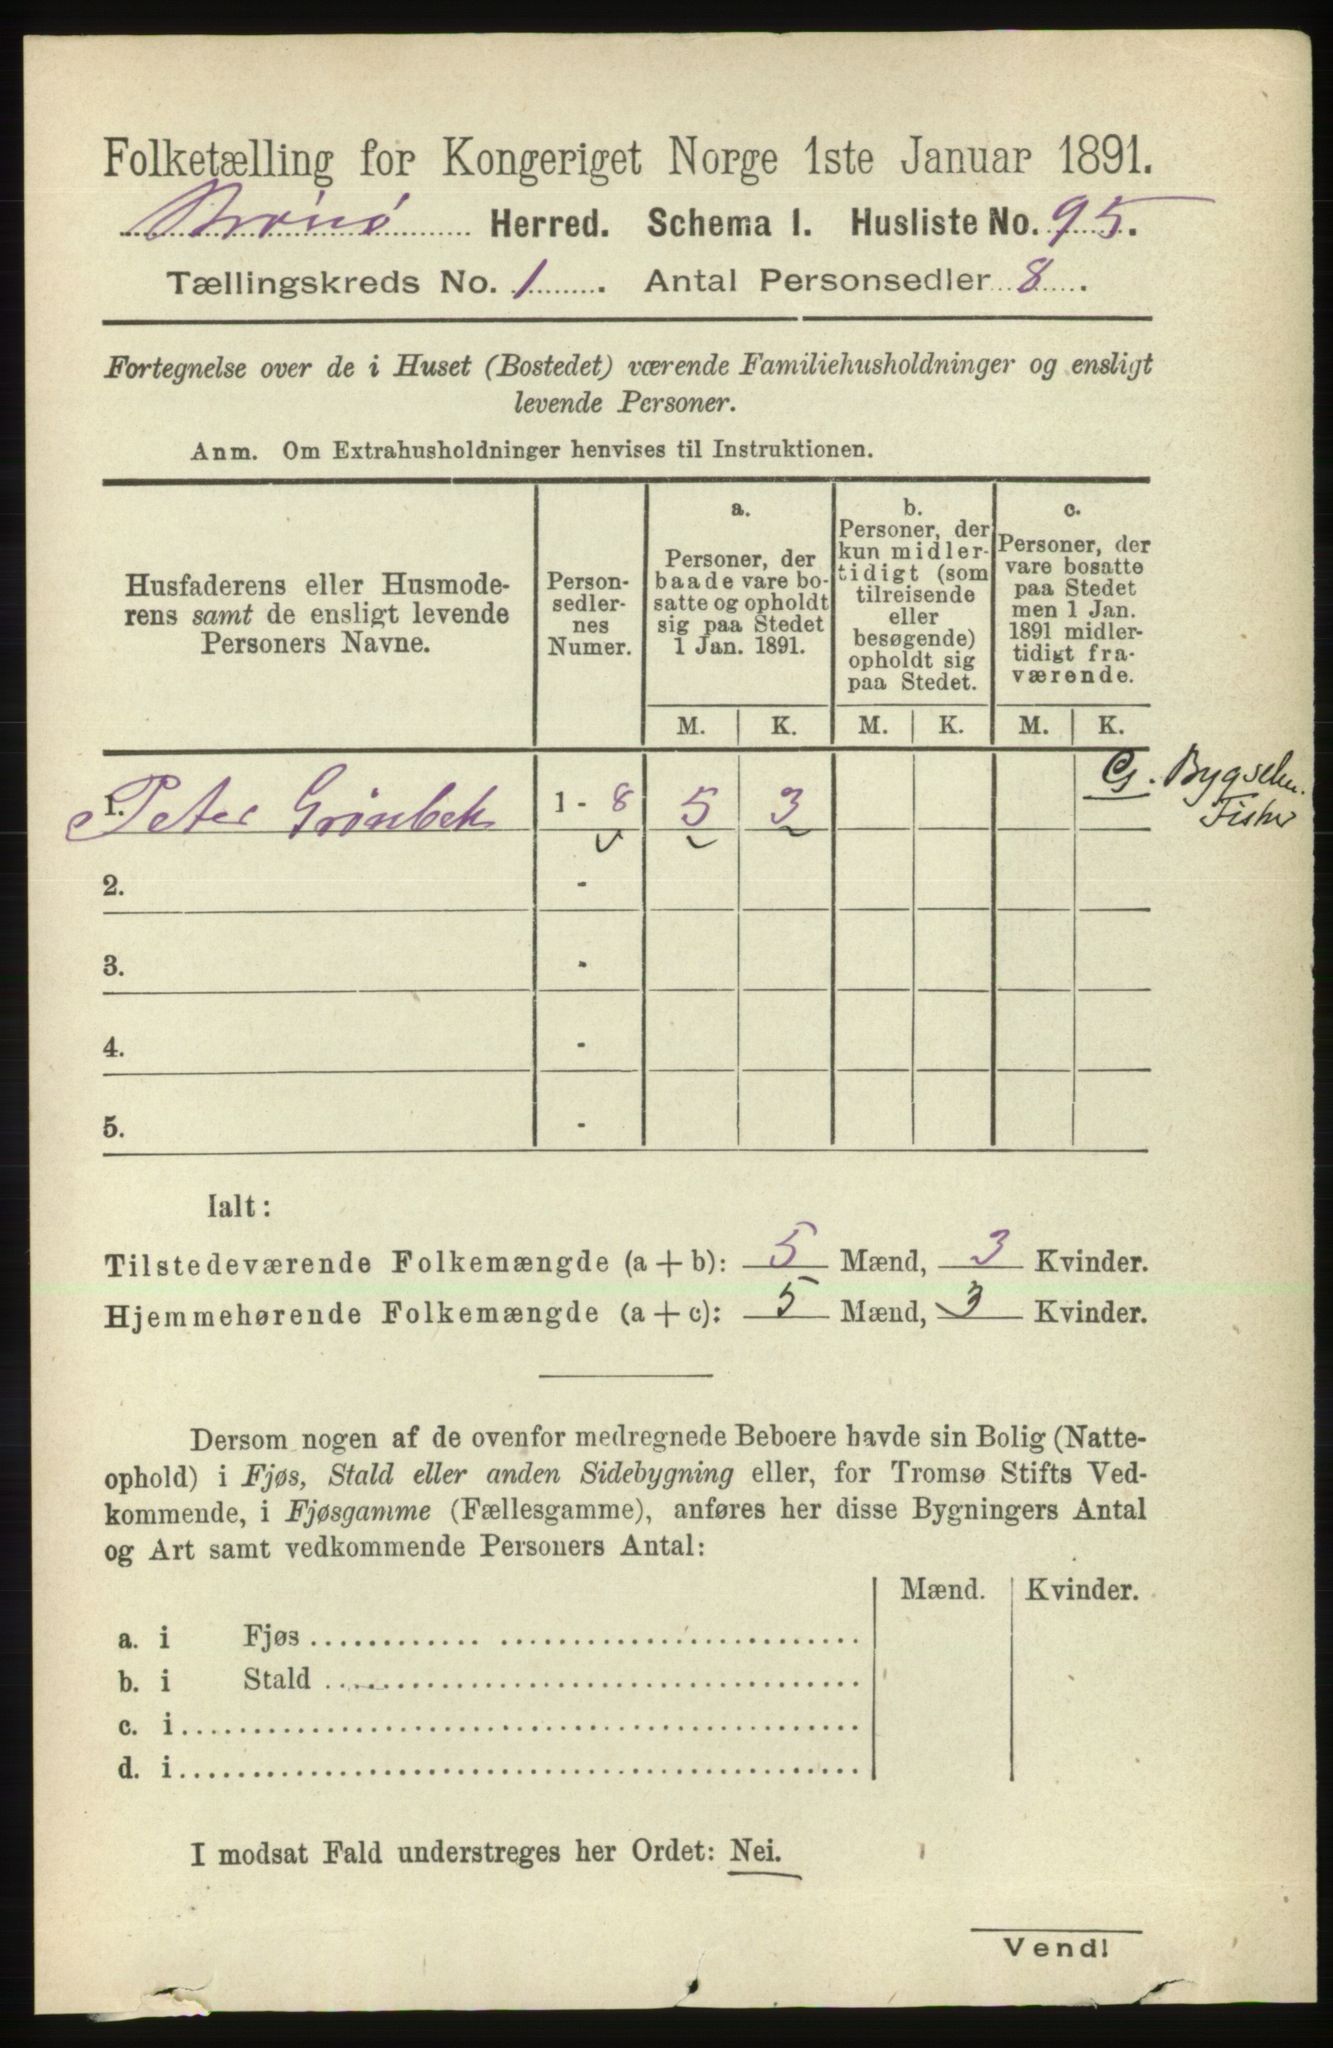 Folketælling for Kongeriget Norge 1ste Januar 1891.
Brønø Herred. Schema I. Husliste No. 95.
Tællingskreds No. 1. Antal Personsedler 8.
Fortegnelse over de i Huset (Bostedet) værende Familiehusholdninger og ensligt
levende Personer.
Anm. Om Extrahusholdninger henvises til Instruktionen.
Husfaderens eller Husmode-
rens samt de ensligt levende
Personers Navne.
Person-
sedler-
nes
Numer.
a.
Personer, der
baade vare bo-
satte og opholdt
sig paa Stedet
1 Jan. 1891.
b.
Personer, der
kun midler-
tidigt (som
tilreisende
eller
besøgende)
opholdt sig
paa Stedet.
c.
Personer, der
vare bosatte
paa Stedet
men 1 Jan.
1891 midler-
tidigt fra-
værende.
M. K. M. K. M. K.
1. Peter Grønbek 1 - 8 5 3 G. Bygselm.
Fisker
2. -
3. -
4. -
5. -
Ialt:
Tilstedeværende Folkemængde (a + b): 5 Mænd, 3 Kvinder.
Hjemmehørende Folkemængde (a + c): 5 Mænd, 3 Kvinder.
Dersom nogen af de ovenfor medregnede Beboere havde sin Bolig (Natte-
ophold) i Fjøs, Stald eller anden Sidebygning eller, for Tromsø Stifts Ved-
kommende, i Fjøsgamme (Fællesgamme), anføres her disse Bygningers Antal
og Art samt vedkommende Personers Antal:
Mænd. Kvinder.
a. i Fjøs
b. i Stald
c. i
d. i
I modsat Fald understreges her Ordet: Nei.
Vend!